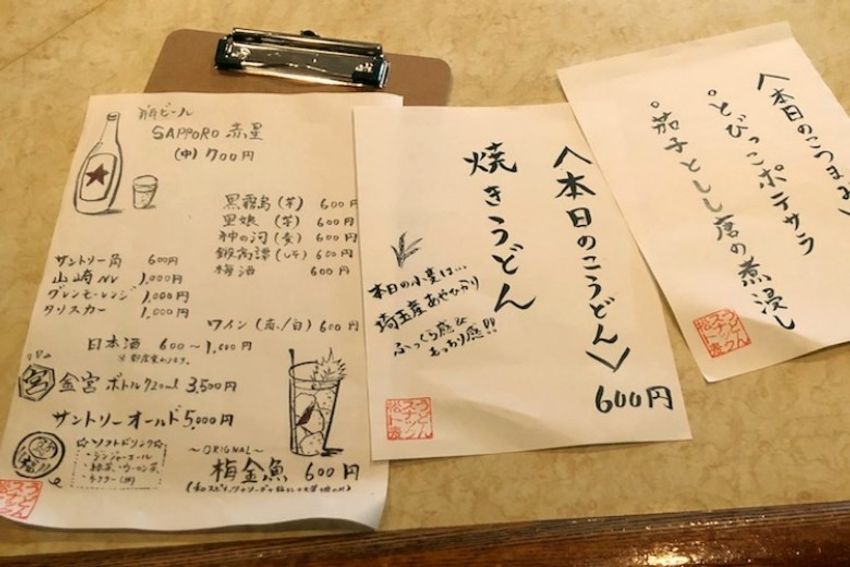 瓶ビール
SAPPORO 赤星
(中) 700円
黒霧島 (芋) 600円
里娘 (芋) 600円
神の河 (麦) 600円
鍛高譚 (しそ) 600円
梅酒 600円
サントリー角 600円
山崎 NV 1,000円
グレンモーレンジ 1,000円
タリスカー 1,000円
ワイン (赤/白) 600円
日本酒 600～1,000円
※都度変わります。
宮 金宮 ボトル720ml 3,500円
サントリーオールド 5,000円
☆ソフトドリンク☆
・ジンジャーエール
・緑茶、ウーロン茶
～ORIGNAL～
梅金魚 600円
〈本日のこうどん〉
焼きうどん
600円
本日の小麦は…
埼玉産あやひかり
ふっくら感&
もっちり感!!
うどん
スナック
松ト麦
〈本日のこつまみ〉
。とびっこポテサラ
。茄子としし唐の煮浸し
うどん
スナック
松ト麦